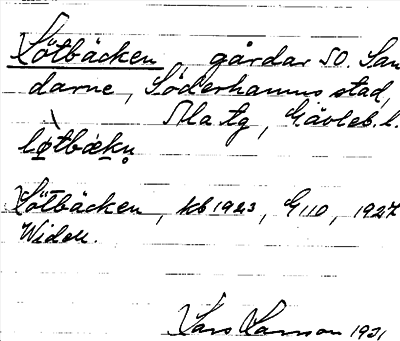 Lötbäcken, gårdar SO. San
darne, Söderhamns stad,
Ala tg, Gävleb. l.
lø̀tbækn̥
Lötbäcken, kb 1923, G110, 1927
Widell.
Lars Larsson 1931